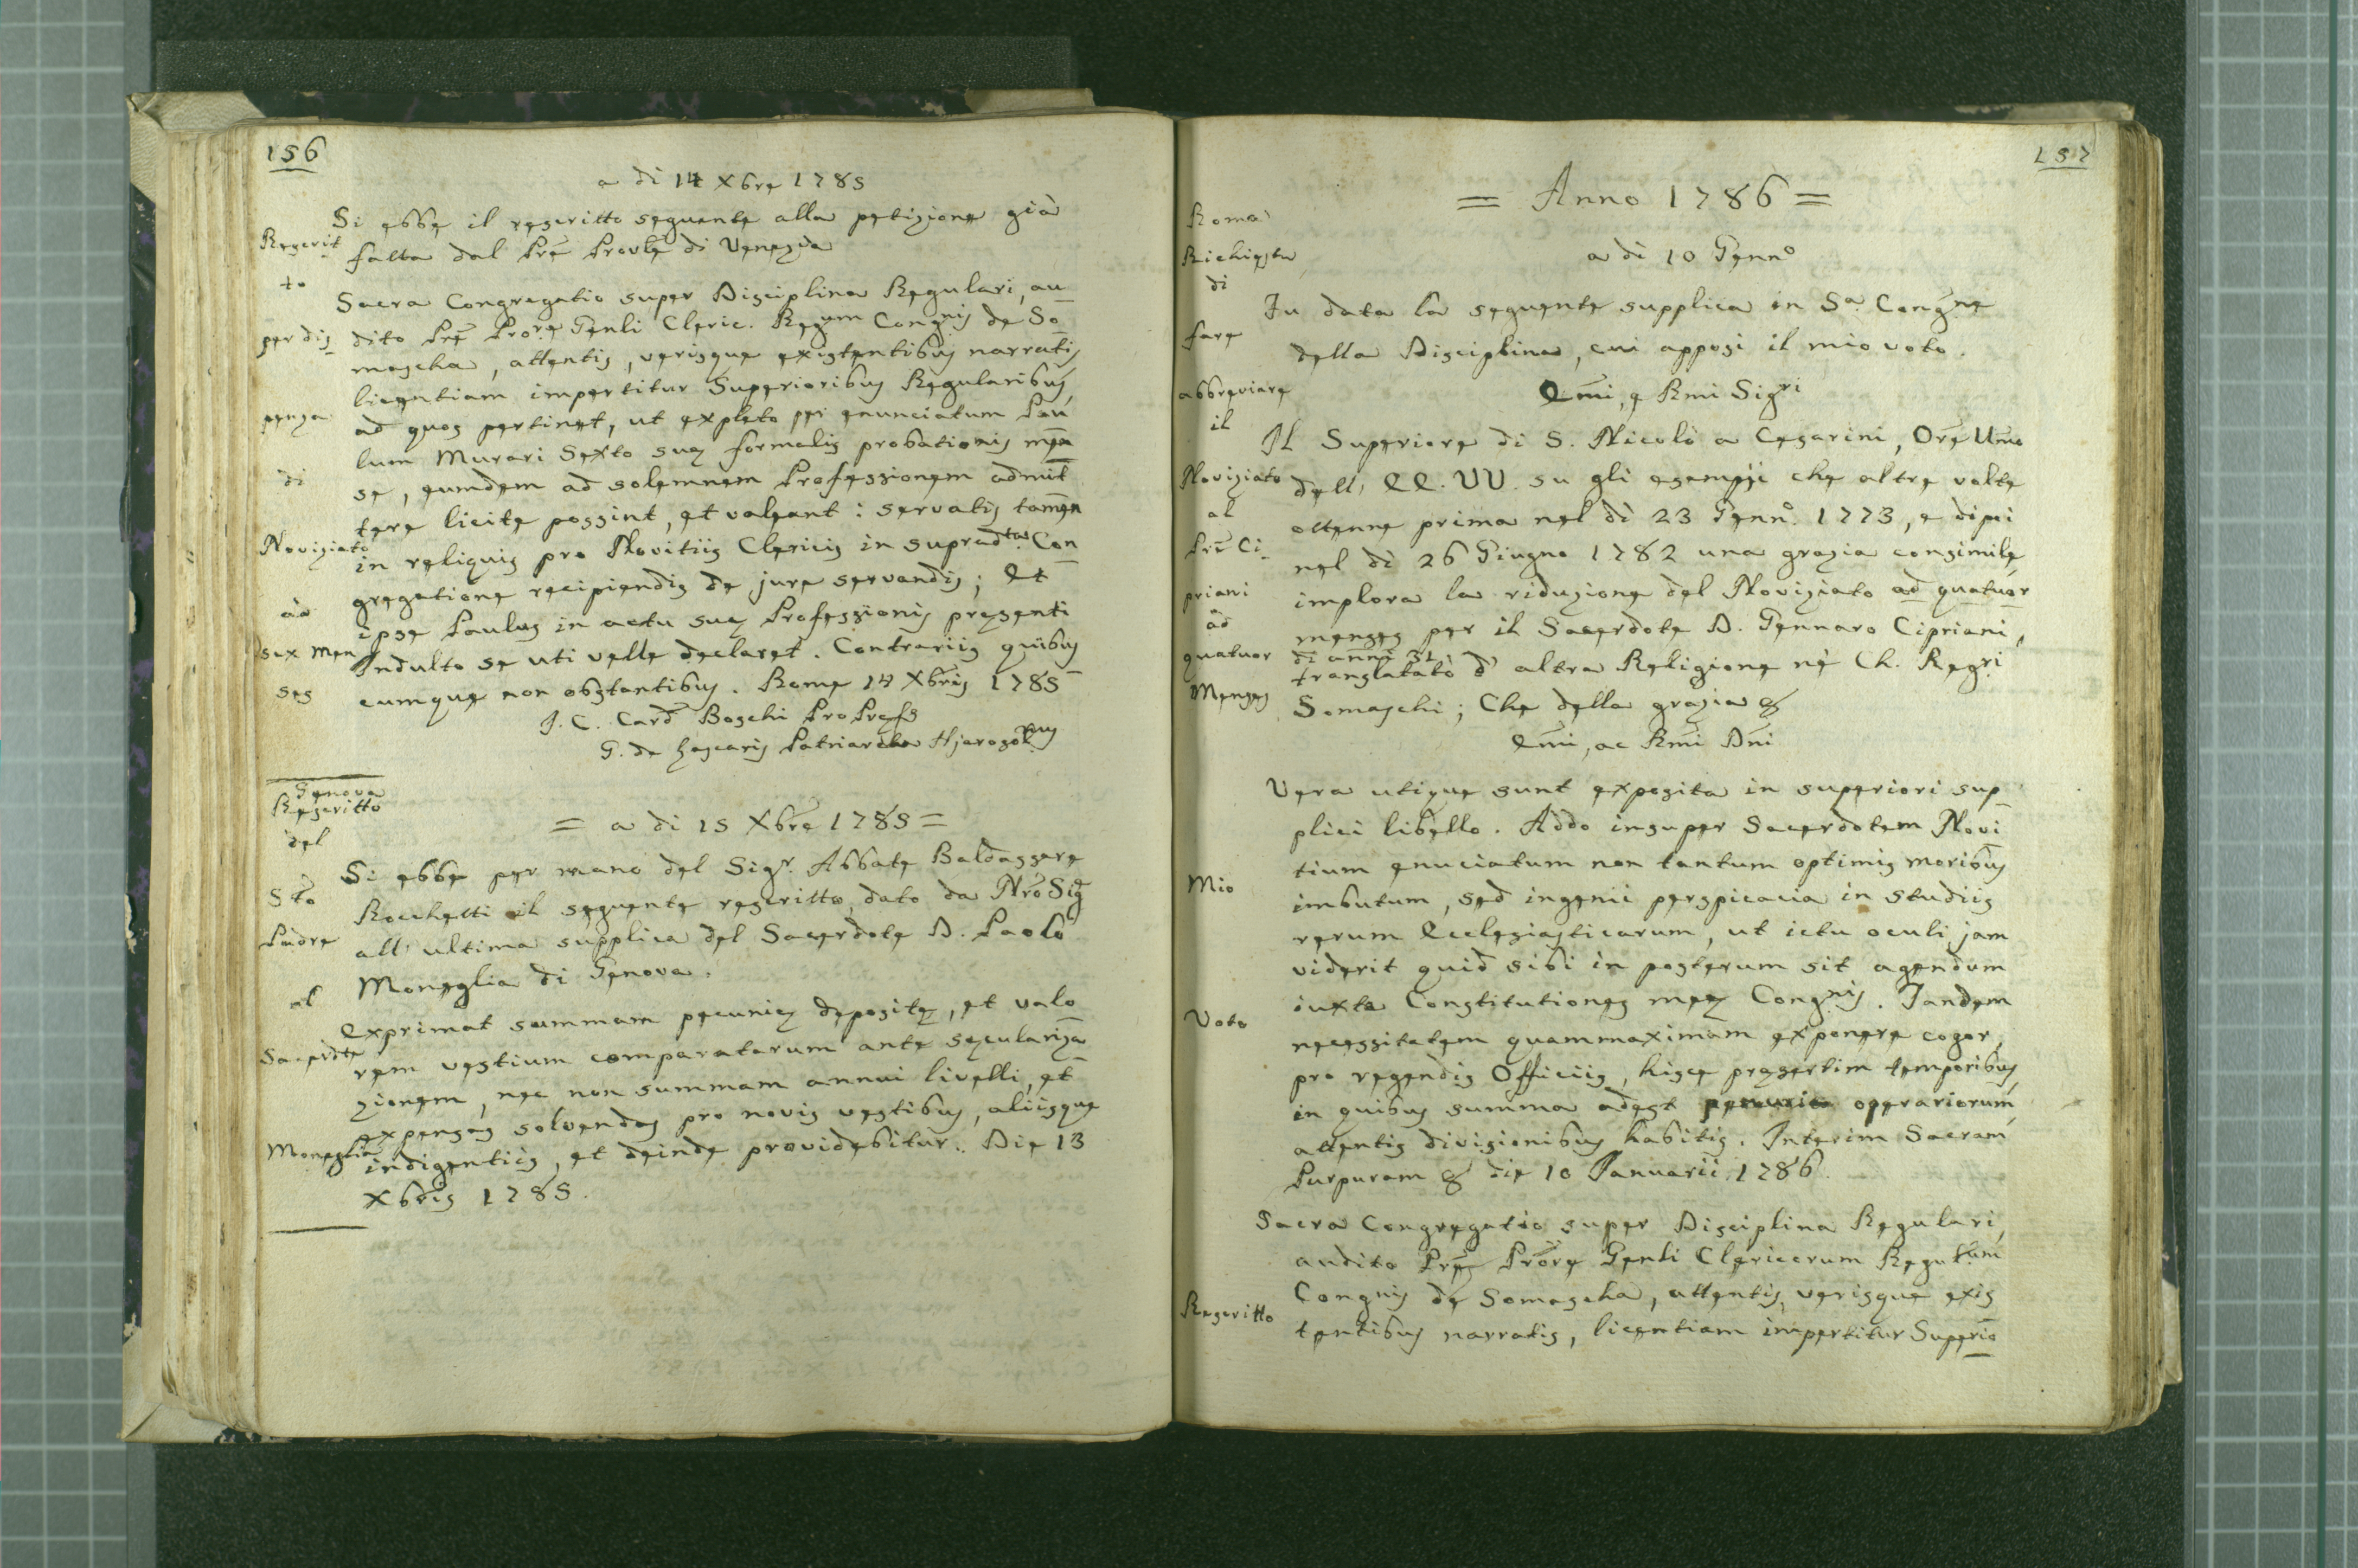 156
a di 14 Xbre 1785
Si ebbe il rescritto seguente alla petizione già
fatta dal Prē Provle di Venezia
Rescrit
to
per dis-
penza
di
Noviziato
ad
sex Men
ses
Sacra Congregatio super Disciplina Regulari, au
dito Prē Prore Genli Cleric. Regum Congnis de So
mascha, attentis, verisque existentibus narratis
licentiam impertitur Superioribus Regularibus
ad quos pertinet, ut expleto per enunciatum Pau
lum Murari Sexto suę formalis probationis mēn
se, eumdem ad solemnem Professionem admit
tere licite possint, et valeant: servatis tamen
in reliquis pro Novitiis Clericis in supradta Con
gregatione recipiendis de jure servandis; Et
ipse Paulus in actu suę Professionis pręsenti
Indulto se uti velle declaret. Contrariis quibus
cumque non obstantibus. Romę 14 Xbris 1785
J. C. Card Boschi ProPrefs
G. de Zascaris Patriarcha Hjerosolnus
Genova
Rescritto
del
Sto
Padre
al
Sacerdte
Moneglia
= a di 15 Xbre 1785 =
Si ebbe per mano del Sigr. Abbate Baldassare
Rocchetti il seguente rescritto, dato da Nro Sig
all' ultima supplica del Sacerdote D. Paolo
Moneglia di Genova.
Exprimat summam pecunię depositę, et valo
rem vestium comparatarum ante sęculariza
zionem, nec non summam annui livelli, et
expensas solvendas pro novis vestibus, aliisque
indigentiis, et deinde providebitur. Die 13
Xbris 1785.
157
= Anno 1786 =
a di 10 Gennº
Roma
Richiesta
di
fare
abbreviare
il
Noviziato
al
Prē Ci-
priani
ad
quatuor
Menses
Fu data la seguente supplica in Sª Congne
della Disciplina, cui apposi il mio voto.
Emi, e Rmi Sigri
Il Superiore di S. Nicolò a Cesarini, Ore Umo
dell' EE. VV. su gli esempj che altre volte
ottenne prima nel dì 23 Gennº 1773, e dipoi
nel di 26 Giugno 1782 una grazia consimile
implora la riduzione del Noviziato ad quatuor
menses per il Sacerdote D. Gennaro Cipriani,
di anni 31
translatato d' altra Religione nè Ch. Regri
Somaschi; Che della grazia &
Emi, ac Rmi Dni
Mio
Voto
Vera utique sunt exposita in superiori sup
plici libello. Addo insuper Sacerdotem Novi
tium enuciatum non tantum optimis moribus
imbutum, sed ingenii perspicacia in studiis
rerum Ecclesiasticarum, ut ictu oculi jam
viderit quid sibi in posterum sit agendum
iuxta Constitutiones meę Congnis. Tandem
necessitatem quammaximam exponere cogor,
pro regendis Officiis, hisce pręsertim temporibus,
in quibus summa adest penuria operariorum,
attentis divisionibus habitis. Interim Sacram
Purpuram & die 10 Januarii 1786.
Rescritto
Sacra Congregatio super Disciplina Regulari,
audito Prē Prore Genli Clericorum Regularum
Congnis de Somascha, attentis, verisque exis
tentibus narratis, licentiam impertitur Superio